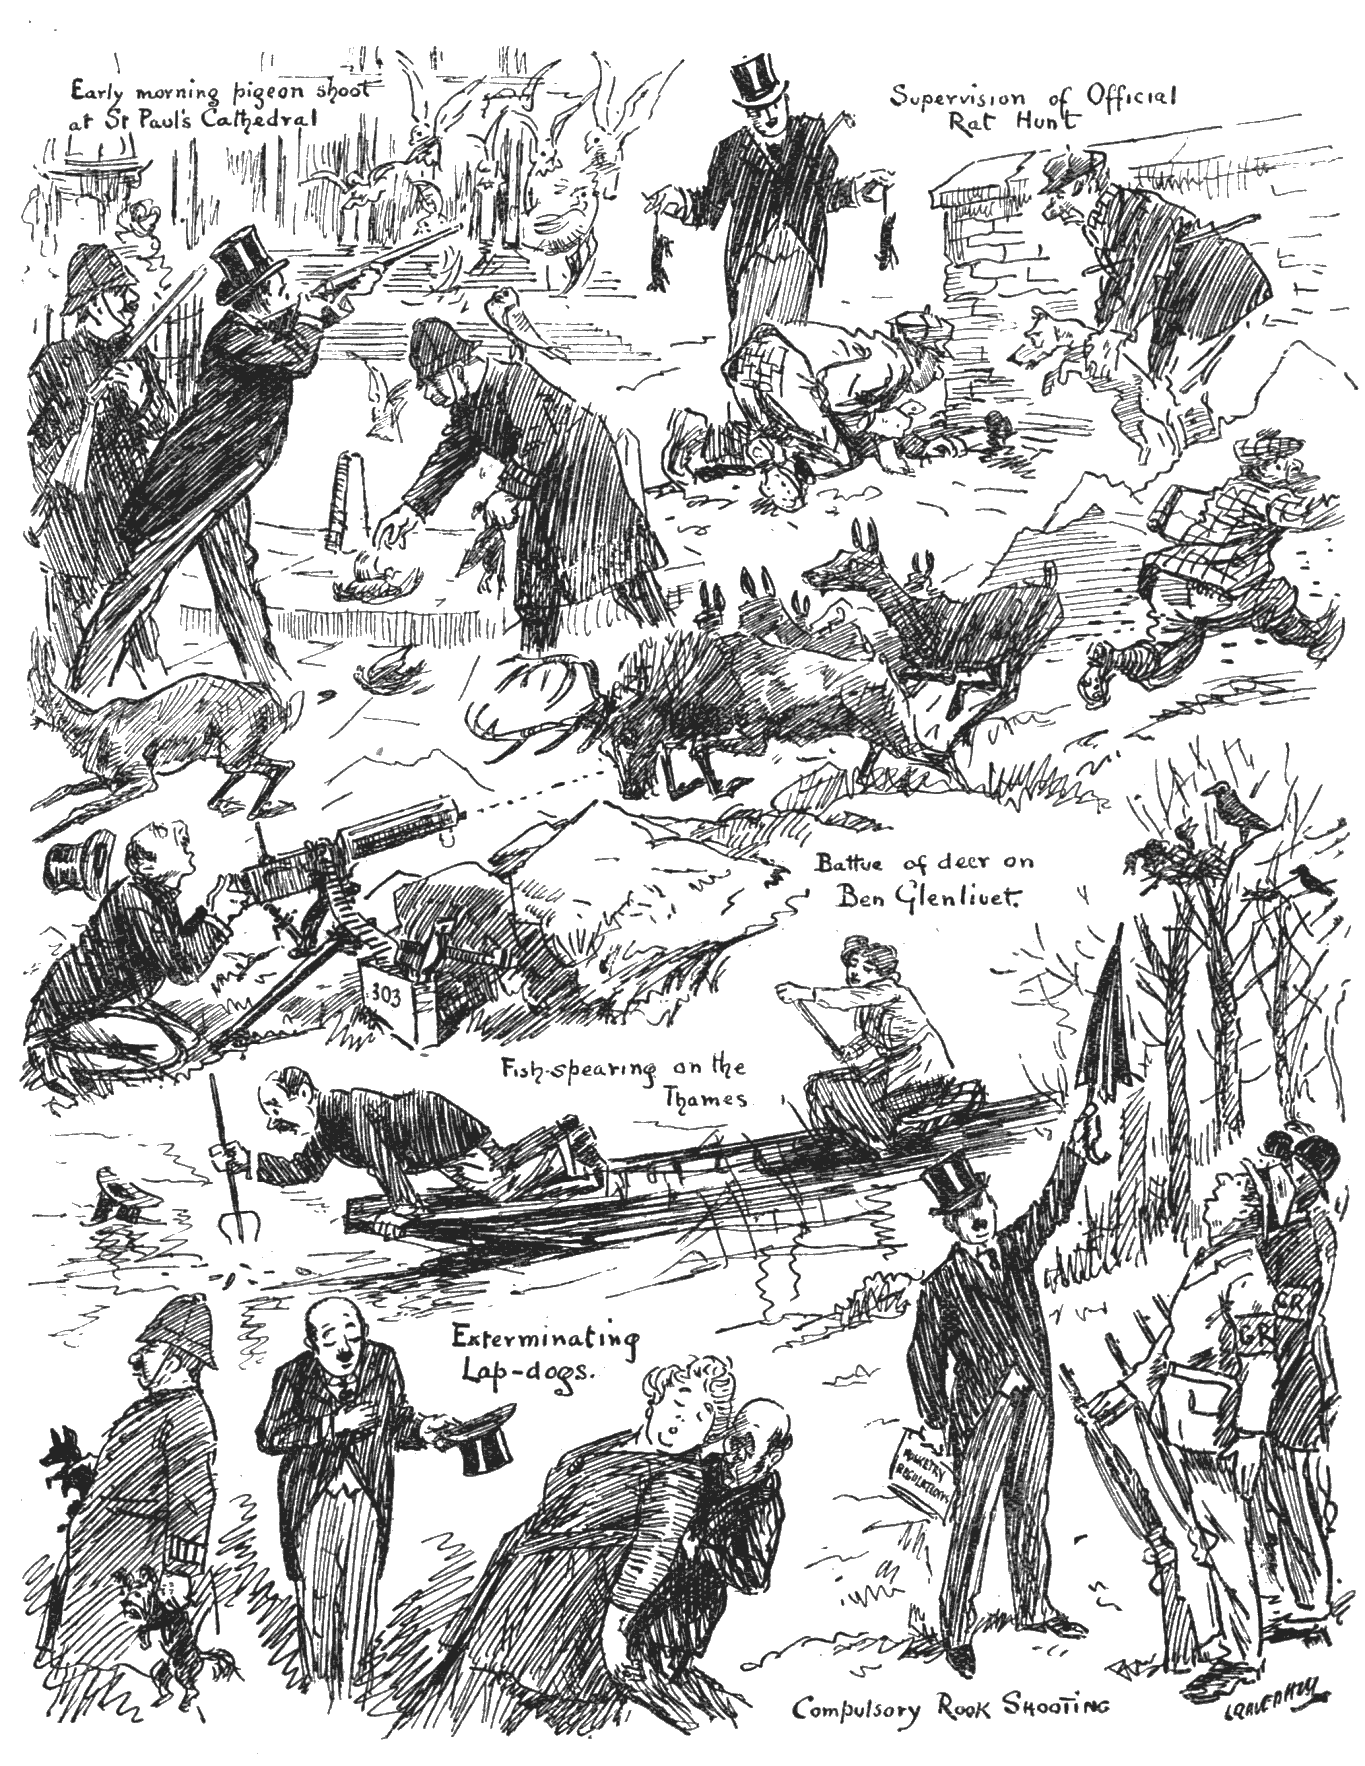 Early morning pigeon shoot
at St Paul's Cathedral
Supervision of Official
Rat Hunt
Battue of deer on
Ben Glenlivet.
303
Fish-spearing on the
Thames
Exterminating
Lap-dogs.
GR
GR
MUSKETRY
REGULATIONS
Compulsory Rook Shooting